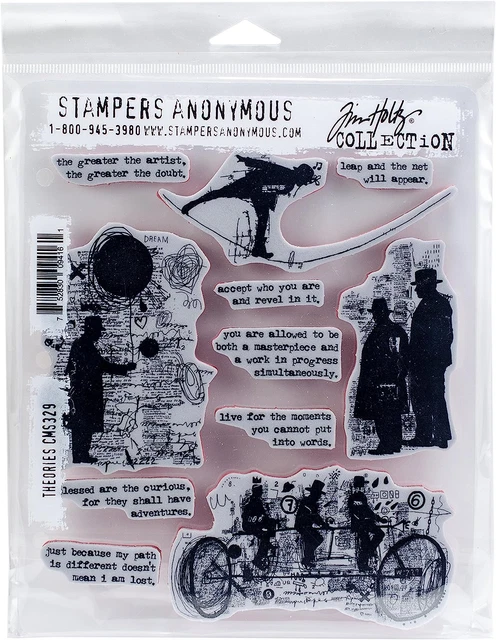 STAMPERS ANONYMOUS
1-800-945-3980 WWW.STAMPERSANONYMOUS.COM
Tim Holtz
COLLECTION
the greater the artist,
the greater the doubt.
leap and the net
will appear.
DREAM
accept who you are
and revel in it.
you are allowed to be
both a masterpiece and
a work in progress
simultaneously.
live for the moments
you cannot put
into words.
THEORIES CMS329
lessed are the curious,
for they shall have
adventures.
just because my path
is different doesn't
mean i am lost.
7
6